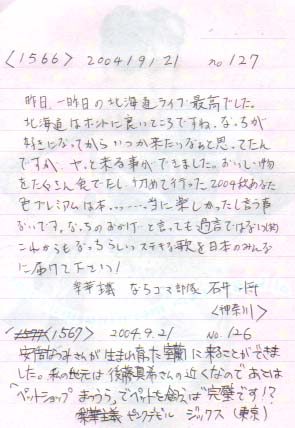 〈1566〉 2004.9.21 no.127
昨日、一昨日の北海道ライブ最高でした。
北海道はホントに良いところですね。なっちが
好きになってからいつか来たいなぁと思ってたん
ですが、やっと来る事ができました。おいしい物
をたくさん食べたし、初めて行った2004秋あなた
色プレミアムは本っ……当に楽しかったし言う事
ないです。なっちのおかげと言っても過言ではない
これからもなっちらしいステキな歌を日本のみんな
に届けて下さい!
なちコマ部隊 石井
〈神奈川〉
〈1567〉 2004.9.21 No.126
安倍なつみさんが生まれ育った室蘭に来ることができま
した。私の地元は後藤真希さんの近くなので あとは
ペットショップまつうら、でペットを飼えば"完璧です!?
ヤングデビル ジックス (東京)